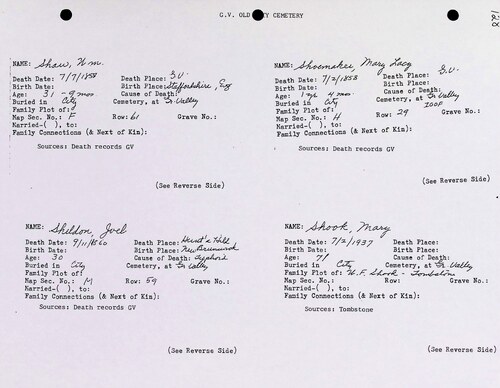 G.V. OLD CITY CEMETERY
NAME: Shaw, Wm.
Death Date: 7/7/1858 Death Place: G.V.
Birth Date: Birth Place: Staffordshire, Eng
Age: 31 - 9 mon Cause of Death:
Buried in City Cemetery, at Gr. Valley
Family Plot of:
Map Sec. No.: F Row: 61 Grave No.:
Married-( ), to:
Family Connections (& Next of Kin):
Sources: Death records GV
(See Reverse Side)
NAME: Shoemaker, Mary Lacy
Death Date: 7/2/1858 Death Place: G.V.
Birth Date: Birth Place:
Age: 1 yr 4 mon Cause of Death:
Buried in City Cemetery, at Gr Valley
Family Plot of: IOOF
Map Sec. No.: H Row: 29 Grave No.:
Married-( ), to:
Family Connections (& Next of Kin):
Sources: Death records GV
(See Reverse Side)
NAME: Sheldon, Joel
Death Date: 9/11/1860 Death Place: Hunt's Hill
Birth Date: Birth Place: New Brunswick
Age: 30 Cause of Death: typhoid
Buried in City Cemetery, at Gr Valley
Family Plot of:
Map Sec. No.: M Row: 59 Grave No.:
Married-( ), to:
Family Connections (& Next of Kin):
Sources: Death records GV
(See Reverse Side)
NAME: Shook, Mary
Death Date: 7/2/1937 Death Place:
Birth Date: Birth Place:
Age: 71 Cause of Death:
Buried in City Cemetery, at Gr Valley
Family Plot of: W.F. Shook - Tombstone
Map Sec. No.: Row: Grave No.:
Married-( ), to:
Family Connections (& Next of Kin):
Sources: Tombstone
(See Reverse Side)